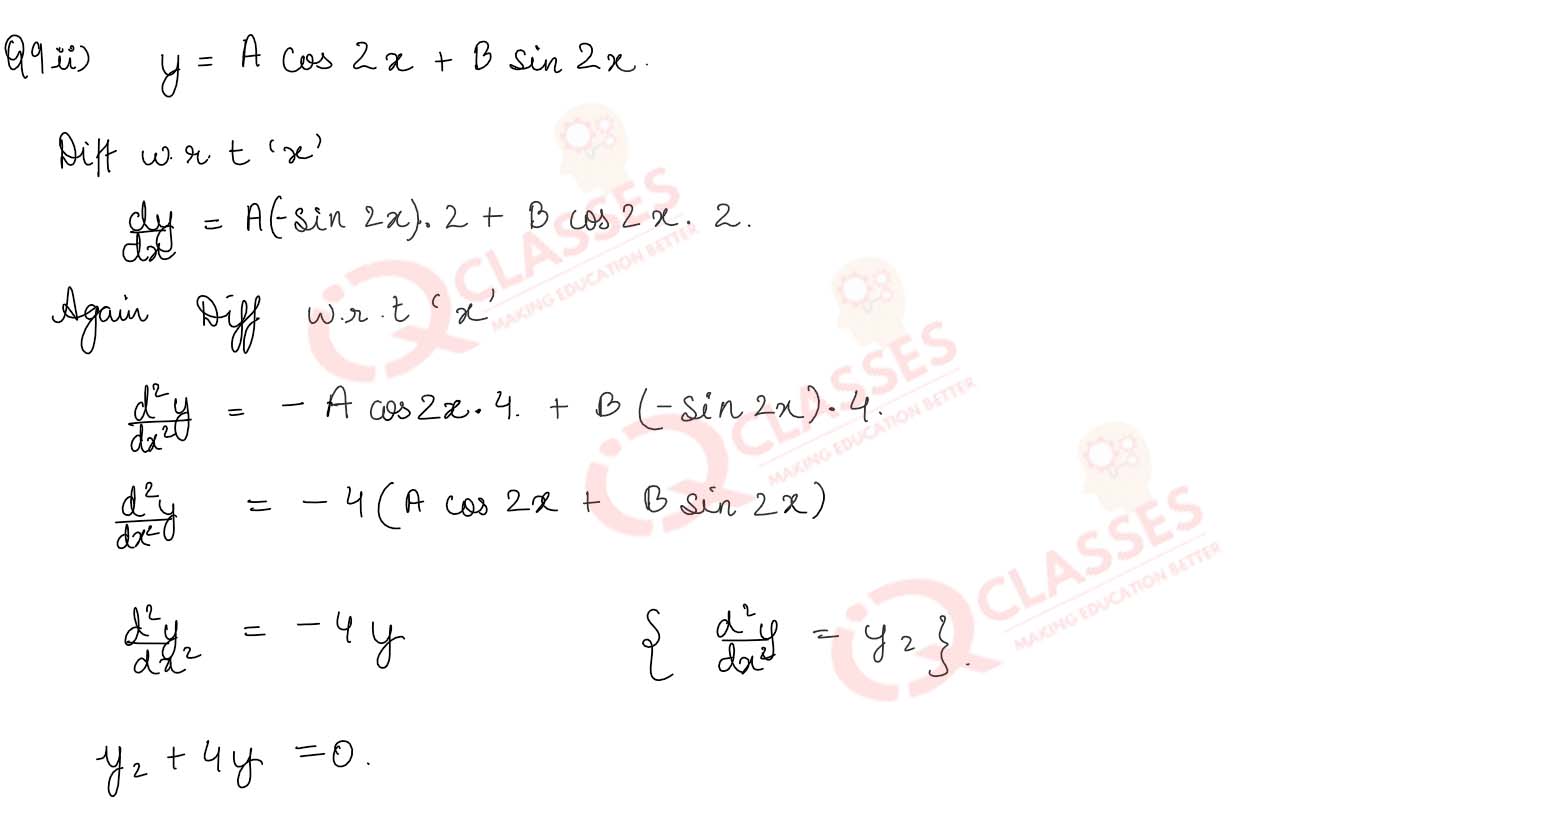 Q9 ii) y = A cos 2x + B sin 2x.
Diff w.r.t 'x'
dy/dx = A(-sin 2x).2 + B cos 2x. 2.
Again Diff w.r.t 'x'
d²y/dx² = - A cos 2x . 4. + B (-sin 2x) . 4.
d²y/dx² = - 4 (A cos 2x + B sin 2x)
d²y/dx² = - 4 y { d²y/dx² = y₂ }.
y₂ + 4y = 0.
IQ CLASSES
MAKING EDUCATION BETTER
IQ CLASSES
MAKING EDUCATION BETTER
IQ CLASSES
MAKING EDUCATION BETTER